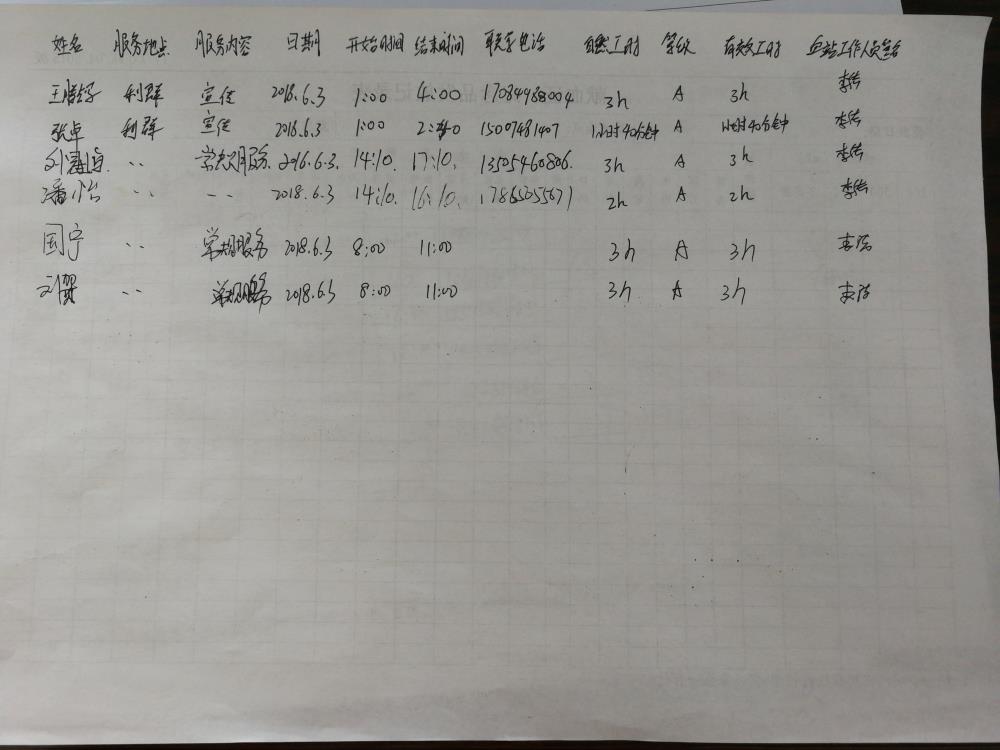 姓名 服务地点 服务内容 日期 开始时间 结束时间 联系电话 自然工时 等级 有效工时 血站工作人员签名
利群 宣传 2018.6.3 1:00 4:00 17084988004 3h A 3h
张卓 利群 宣传 2018.6.3 1:00 2:40 15007481407 1小时40分钟 A 1小时40分钟
〃 常规服务 2016.6.3. 14:10. 17:10. 13505460806. 3h A 3h
潘怡 〃 〃 2018.6.3 14:10 16:10. 17865355671 2h A 2h
国宁 〃 常规服务 2018.6.3 8:00 11:00 3h A 3h
刘翼 〃 常规服务 2018.6.3 8:00 11:00 3h A 3h